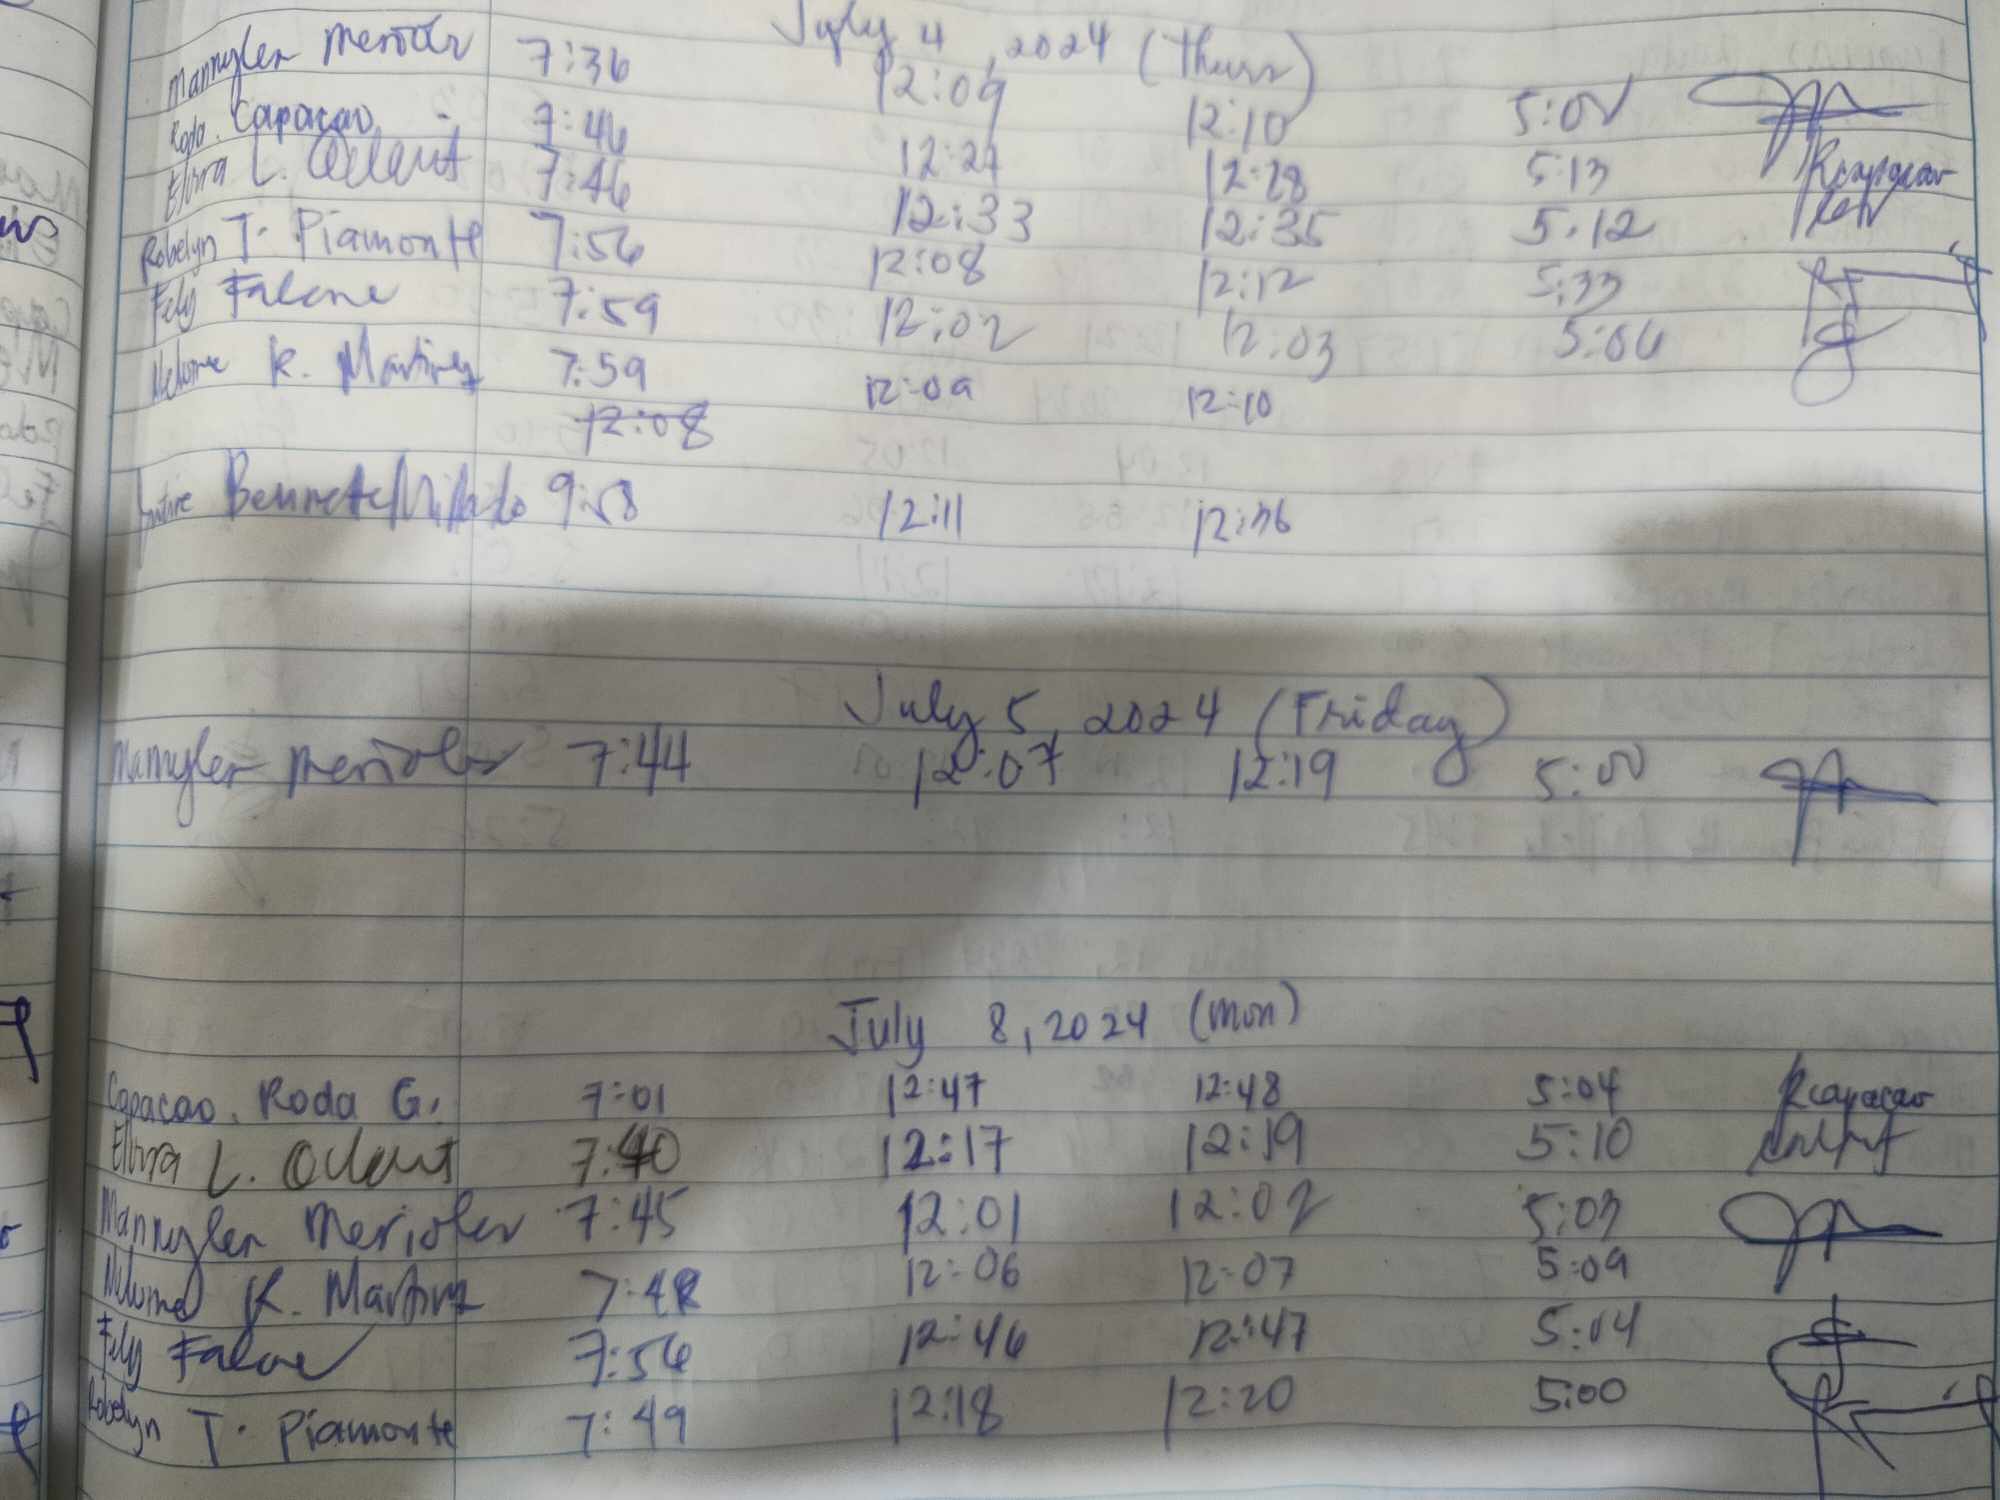 July 4, 2024 (Thurs)
Mannylen Merioles 7:36 12:09 12:10 5:00
Roda. Capacao 7:46 12:27 12:28 5:13 Rcapacao
Elvira L. Oclarit 7:46 12:33 12:35 5:12
Robelyn T. Piamonte 7:56 12:08 12:12 5:33
Fely Falcone 7:59 12:02 12:03 5:06
K. Martinez 7:59 12:09 12:10
12:08
Bennete 9:58 12:11 12:36
July 5, 2024 (Friday)
Mannylen Merioles 7:44 12:07 12:19 5:00
July 8, 2024 (Mon)
Capacao, Roda G. 7:01 12:47 12:48 5:04 Rcapacao
Elvira L. Oclarit 7:40 12:17 12:19 5:10
Mannylen Merioles 7:45 12:01 12:02 5:03
K. Martinez 7:48 12:06 12:07 5:09
Fely Falcone 7:56 12:46 12:47 5:04
Robelyn T. Piamonte 7:49 12:18 12:20 5:00